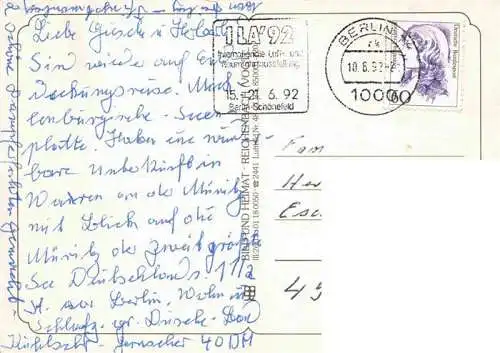 Liebe Gisela u. Herbert
Sind wieder auf Ent
deckungsreise. Meck
lenburgische - Seen
platte. Haben eine wunder
bare Unterkunft in
Waren an der Müritz
mit Blick auf die
Müritz der zweitgrößte
See Deutschlands. 1 1/2
St. von Berlin. Wohn u
Schlafz. gr. Dusche - Bad
Kühlschr. Fernseher 40 DM
ILA '92
Internationale Luft- und
Raumfahrtausstellung
15.-21. 6. 92
Berlin-Schönefeld
BERLIN
10.6.92
1000
60
Deutsche Bundespost
BILD UND HEIMAT REICHENBACH (VOGTL)
Fam
Her
Esc
4